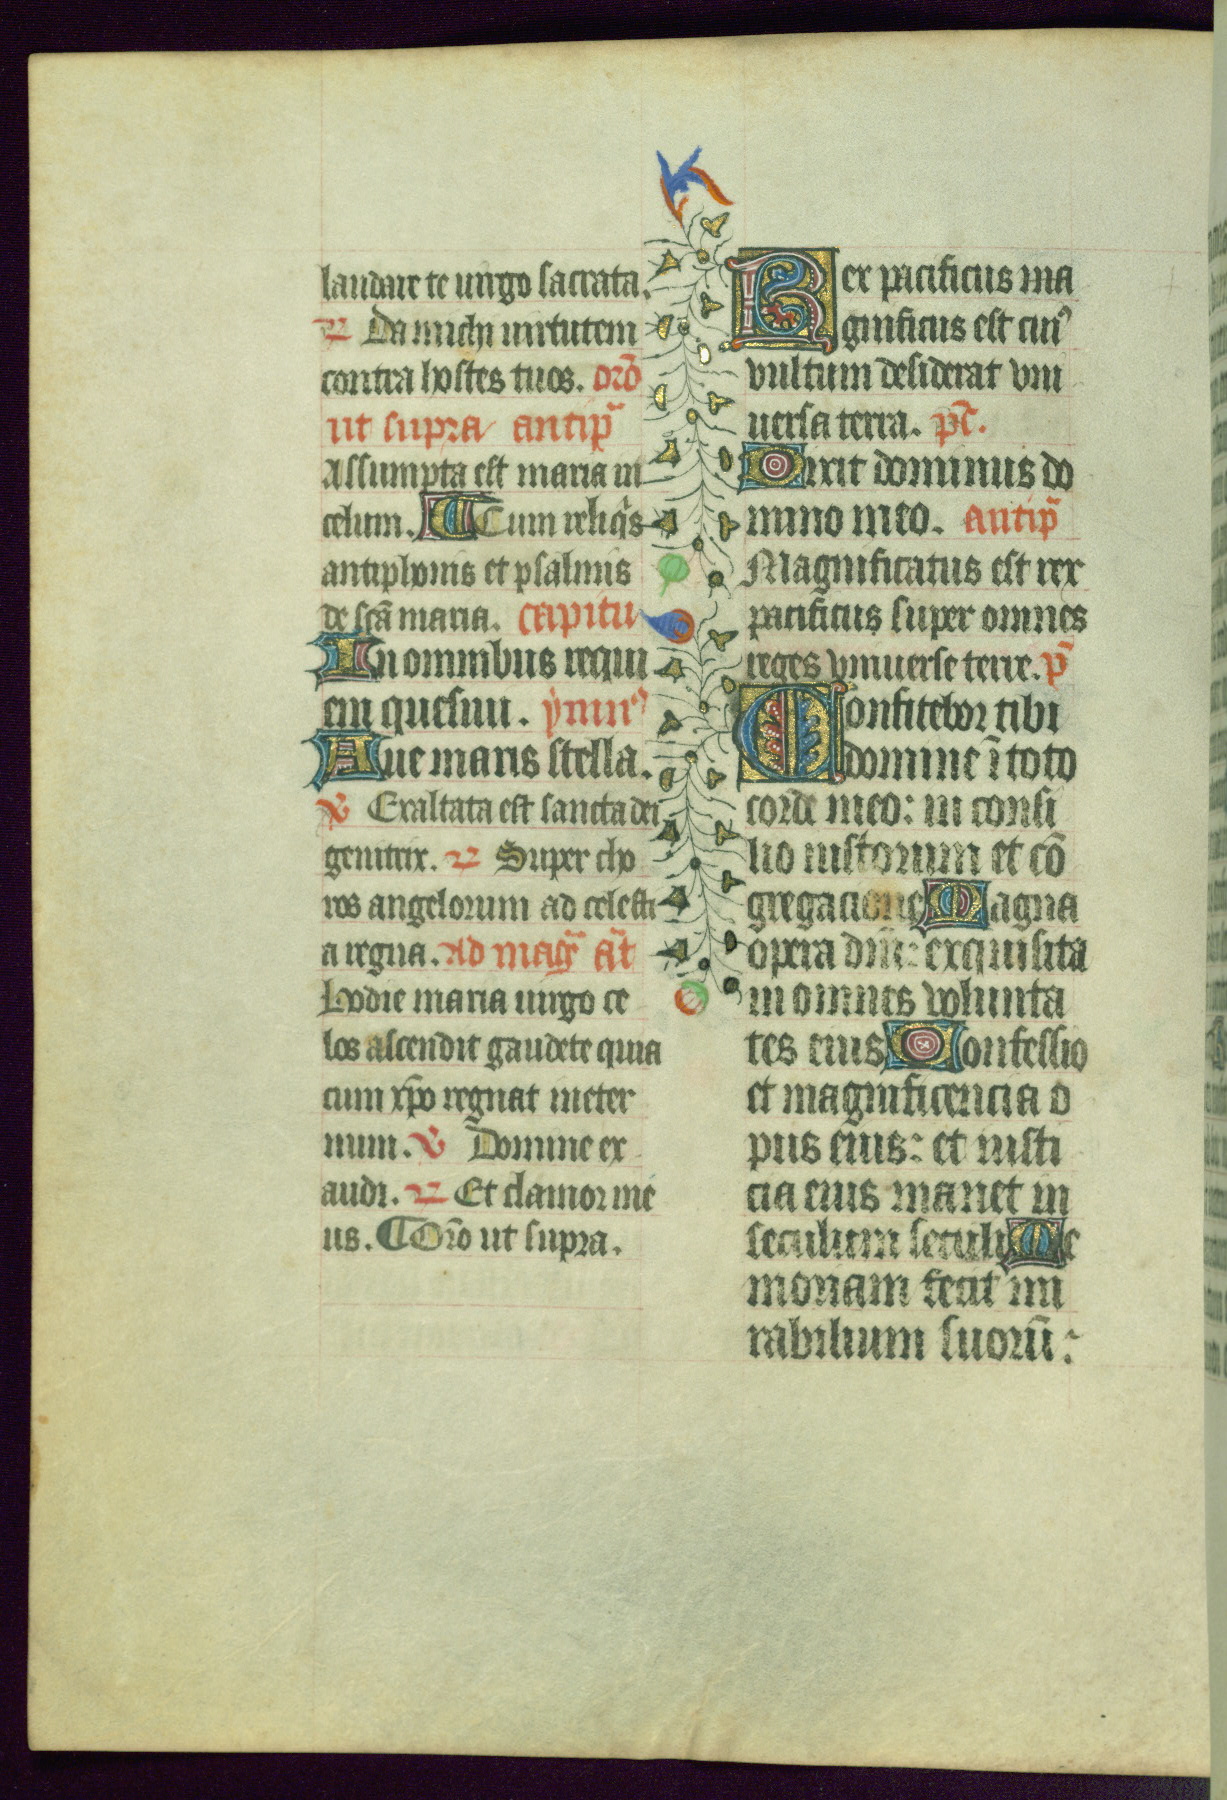 laudare te uirgo sacrata.
℟ Da michi uirtutem
contra hostes tuos. orō
ut supra antip̄
Assumpta est maria in
celum. Cum reliq̄s
antiphonis et psalmis
de sc̄a maria. capitu
In omnibus requi
em quesiui. ẏmnꝰ
Aue maris stella.
℣ Exaltata est sancta dei
genitrix. ℟ Super cho
ros angelorum ad celesti
a regna. Ad magr̄ āt
Hodie maria uirgo ce
los ascendit gaudete quia
cum xp̄o regnat in eter
num. ℣ Domine ex
audi. ℟ Et clamor me
us. Orō ut supra.
Rex pacificus ma
gnificus est cuiꝰ
vultum desiderat vni
uersa terra. ps̄.
Dixit dominus do
mino meo. antip̄
Magnificatus est rex
pacificus super omnes
reges vniuerse terre. p̄
Confitebor tibi
domine ī toto
corde meo: in consi
lio iustorum et cō
gregacione Magna
opera dn̄i: exquisita
in omnes volunta
tes eius Confessio
et magnificencia o
pus eius: et iusti
cia eius manet in
seculum seculi Me
moriam fecit mi
rabilium suorū: